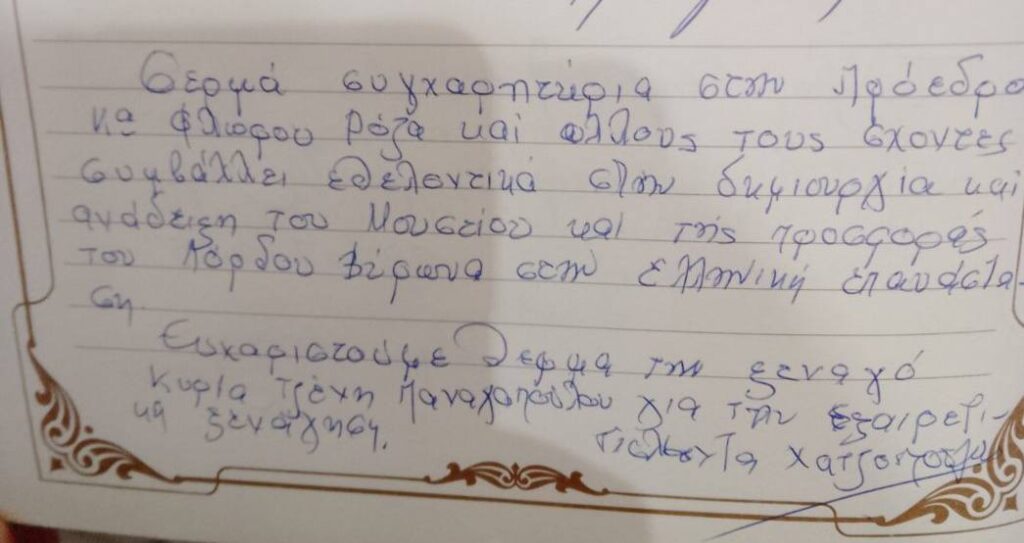 Θερμά συγχαρητήρια στην Πρόεδρο
κα Φλώρου Ρόζα και άλλους τους έχοντες
συμβάλλει εθελοντικά στην δημιουργία και
ανάδειξη του Μουσείου και της προσφοράς
του Λόρδου Βύρωνα στην Ελληνική επανάστα-
ση.
Ευχαριστούμε θερμά την ξεναγό
Κυρία Παναγοπούλου για την εξαιρετι-
κη ξενάγηση.